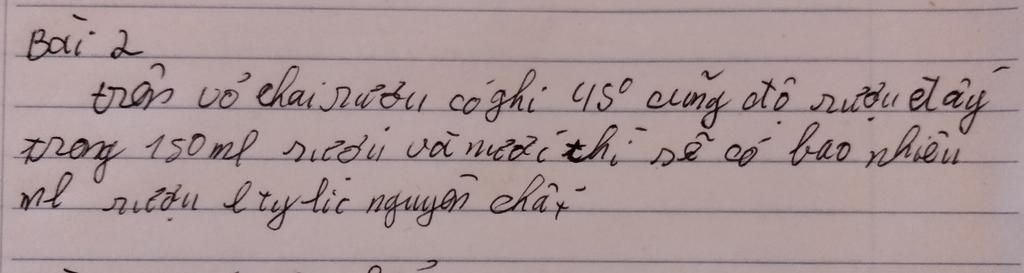 Bài 2
trên vỏ chai rượu có ghi 45° cũng độ rượu đấy
trong 150ml rượu và nước thì sẽ có bao nhiêu
ml rượu etylic nguyên chất